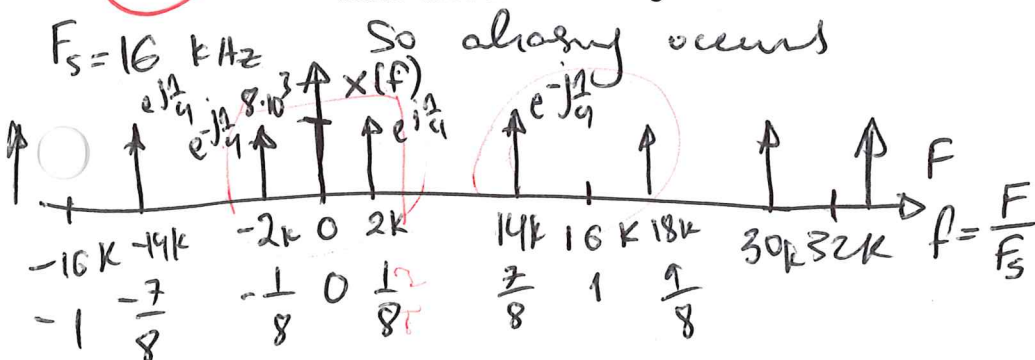 F_s = 16 kHz So aliasing occurs
e^{jπ/4} e^{-jπ/4} 8·10^3 X(f) e^{jπ/4} e^{-jπ/4}
F
-16K -14K -2K 0 2K 14K 16K 18K 30K 32K f = F/F_s
-1 -7/8 -1/8 0 1/8 7/8 1 9/8